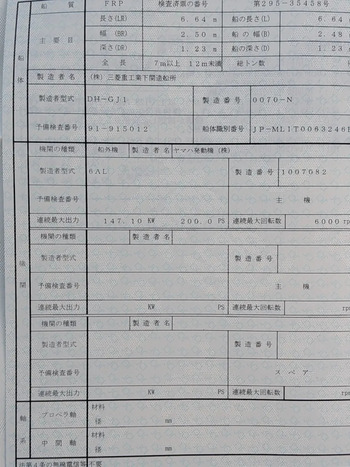 船質 FRP 検査済票の番号 第295-35458号
船体 主要目 長さ(LR) 6.64m 船の長さ(L) 6.64
幅(BR) 2.50m 船の幅(B) 2.48
深さ(DR) 1.23m 船の深さ(D) 1.23
全長 7m以上 12m未満 総トン数
製造者名 (株)三菱重工業下関造船所
製造者型式 DH-GJ1 製造番号 0070-N
予備検査番号 91-915012 船体識別番号 JP-ML1T0063246
機関 機関の種類 船外機 製造者名 ヤマハ発動機(株)
製造者型式 6AL 製造番号 1007082
予備検査番号 主機
連続最大出力 147.10 KW 200.0 PS 連続最大回転数 6000rp
機関の種類 製造者名
製造者型式 製造番号
予備検査番号 主機
連続最大出力 KW PS 連続最大回転数
機関の種類 製造者名
製造者型式 製造番号
予備検査番号 スペア
連続最大出力 KW PS 連続最大回転数 rp
軸系 プロペラ軸 材料
径 mm
中間軸 材料
径 mm